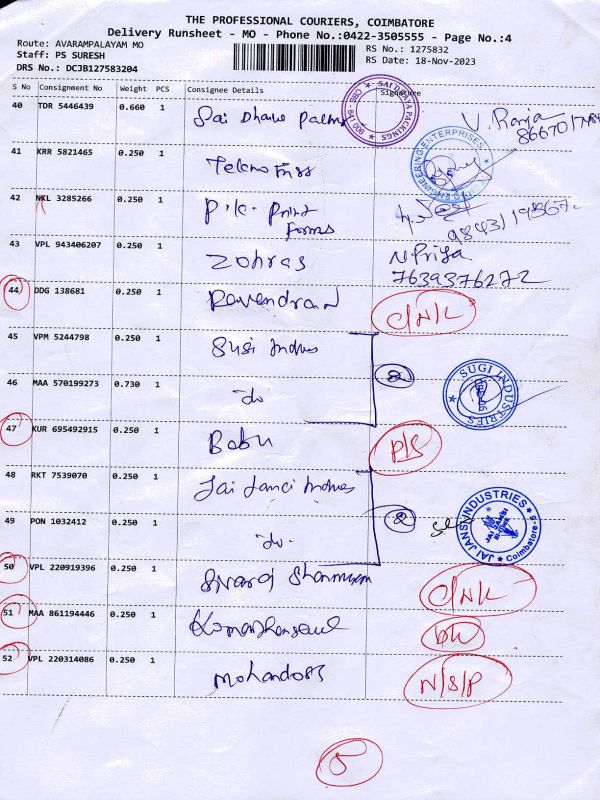 THE PROFESSIONAL COURIERS, COIMBATORE
Delivery Runsheet - MO - Phone No.:0422-3505555 - Page No.:4
Route: AVARAMPALAYAM MO
RS No.: 1275832
Staff: PS SURESH
RS Date: 18-Nov-2023
DRS No.: DCJB127583204
S No Consignment No Weight PCS Consignee Details Signature
40 TDR 5446439 0.660 1 Sai
V. Ranja
41 KRR 5821465 0.250 1 Tekno
42 NKL 3285266 0.250 1 P.K. Print Forms
43 VPL 943406207 0.250 1 Zohras N Priya
7639376272
44 DDG 138681 0.250 1 Ravendran C/N/L
45 VPM 5244798 0.250 1 Susi Indus
2
SUGI INDUSTRIES
46 MAA 570199273 0.730 1 do
47 KUR 695492915 0.250 1 Babu P/S
48 RKT 7539070 0.250 1 Jai Jansi Indus
2
JAI JANSI INDUSTRIES
Coimbatore-6
49 PON 1032412 0.250 1 do
50 VPL 220919396 0.250 1 C/N/L
51 MAA 861194446 0.250 1
52 VPL 220314086 0.250 1 Mohandoss N/S/P
5